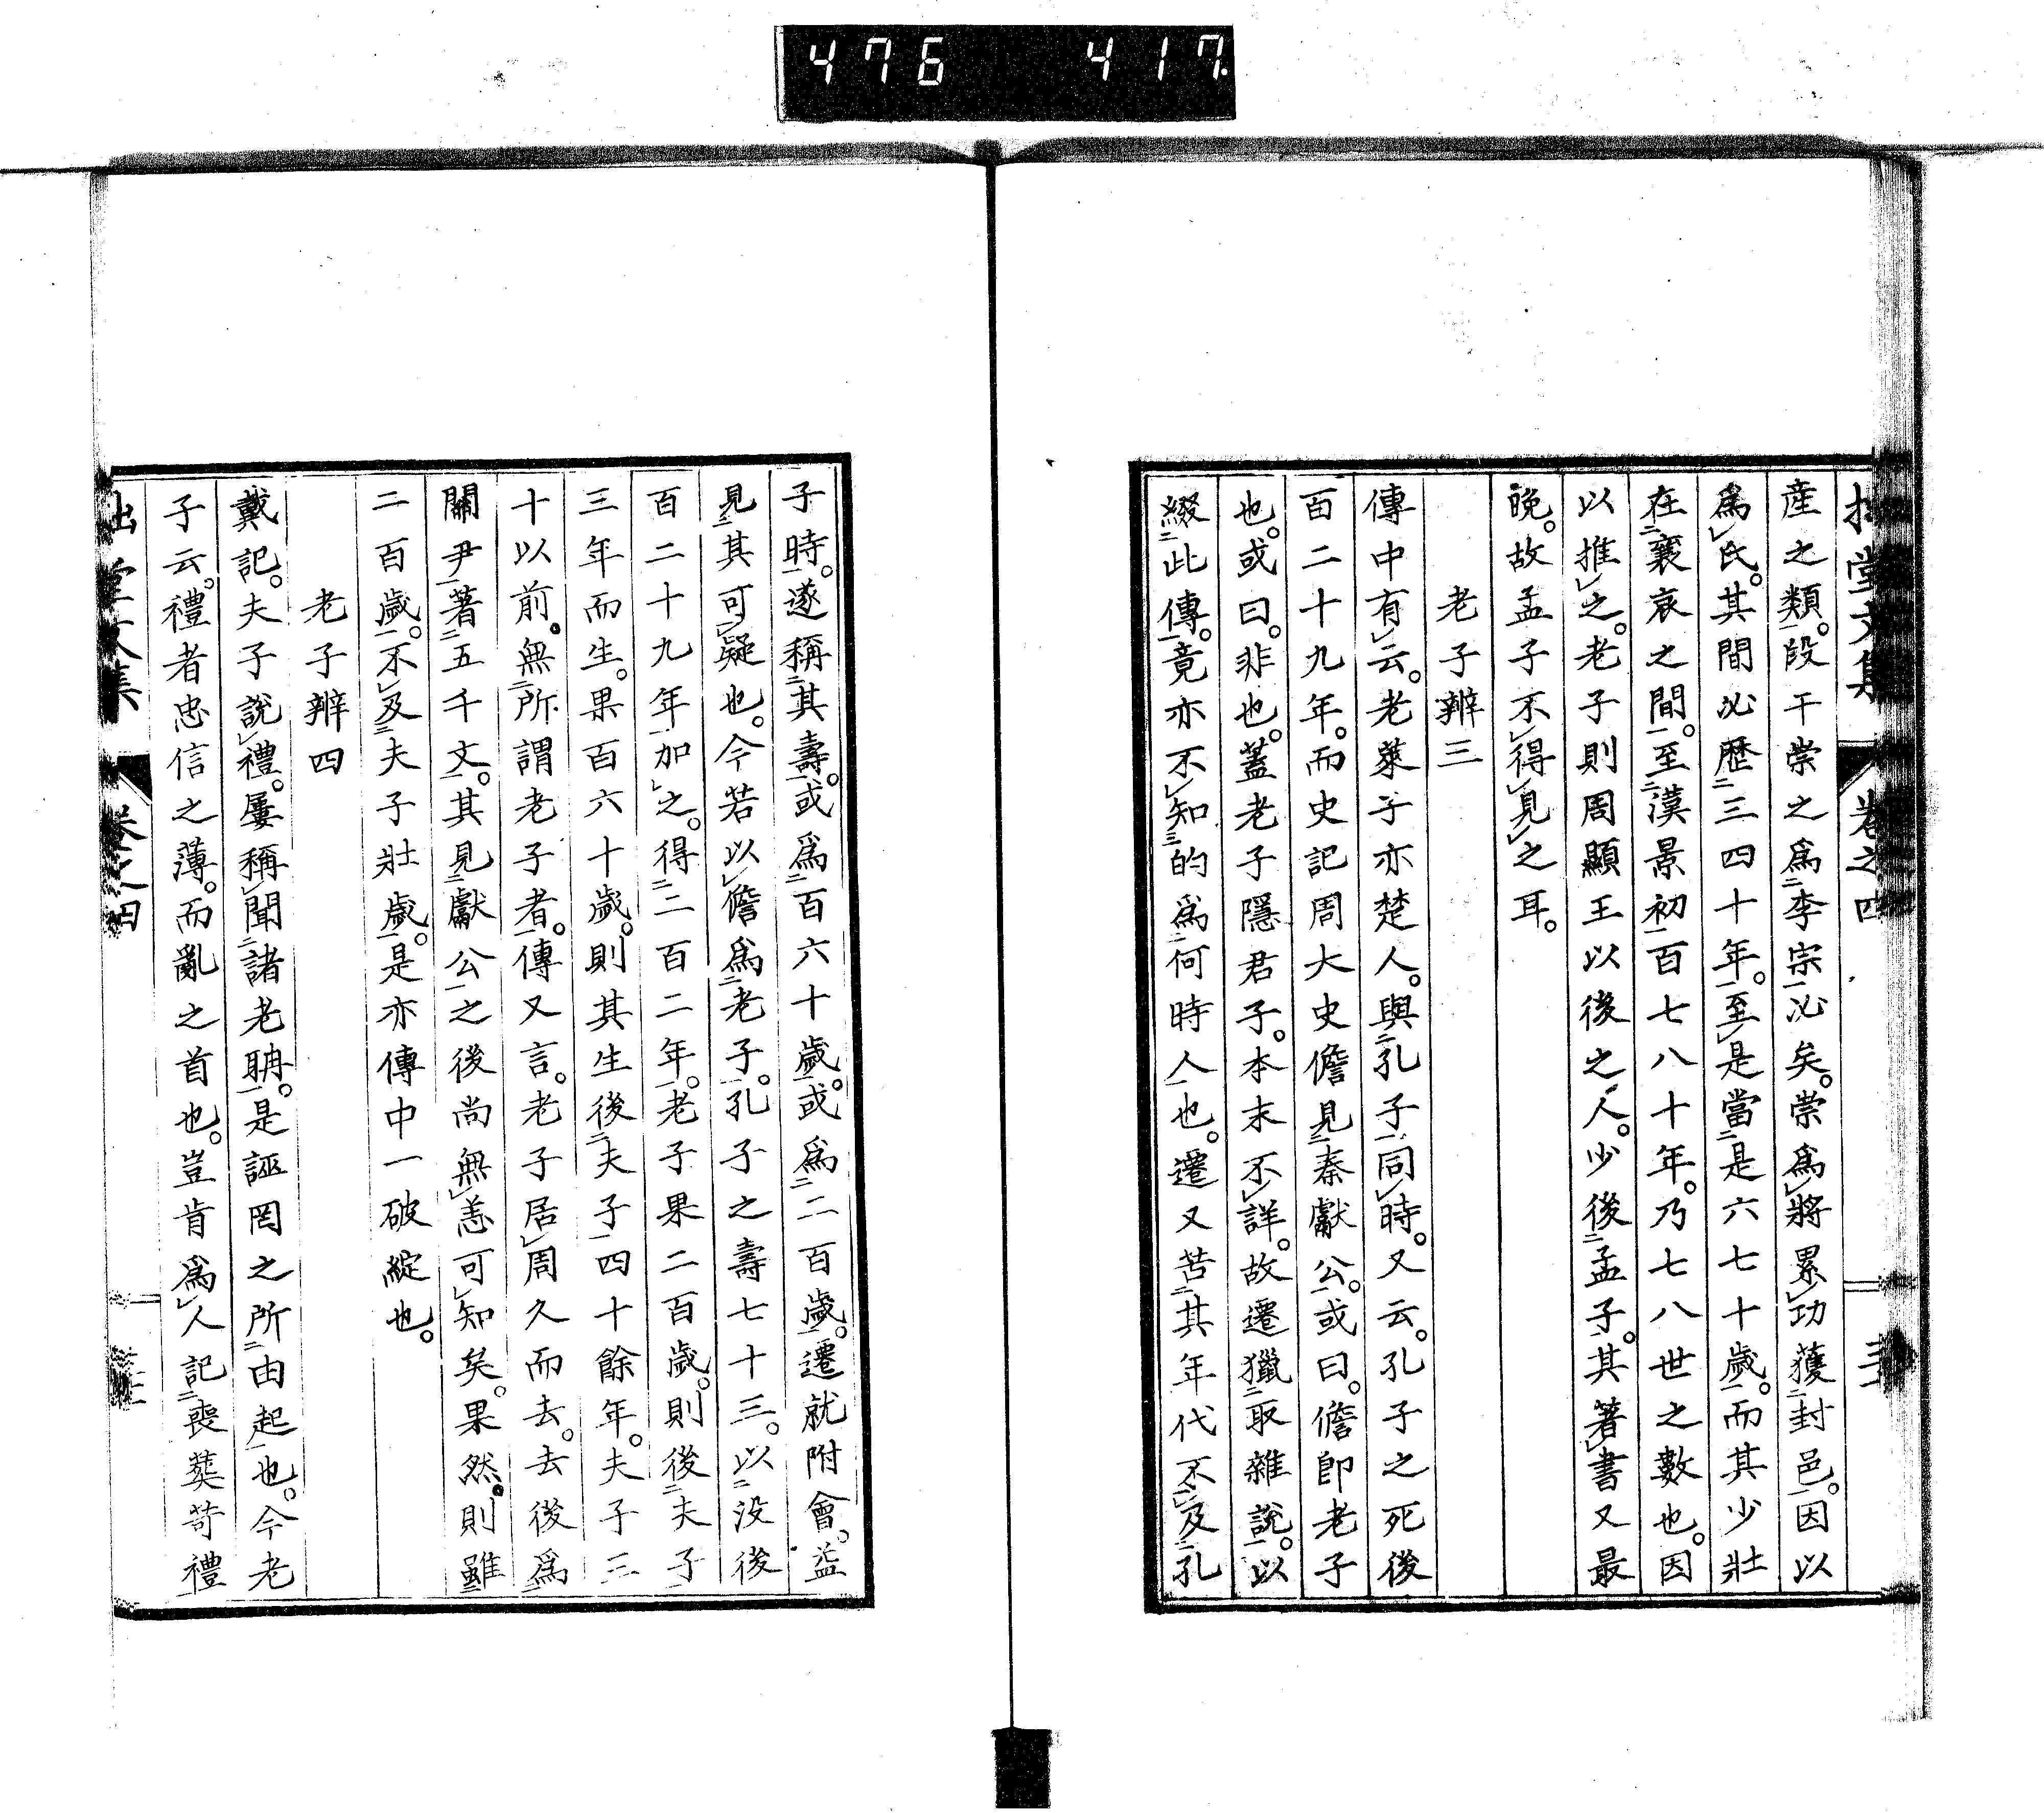 476 417
産之類。段干崇之爲李宗必矣。崇爲將累功獲封邑。因以
爲氏。其間必歴三四十年。至是當是六七十歲。而其少壯
在襄哀之間。至漢景初百七八十年。乃七八世之數也。因
以推之。老子則周顯王以後之人。少後孟子。其著書又最
晚。故孟子不得見之耳。
老子辨三
傳中有云。老萊子亦楚人。與孔子同時。又云。孔子之死後
百二十九年。而史記周大史儋見秦獻公。或曰。儋卽老子
也。或曰。非也。蓋老子隱君子。本末不詳。故遷獵取雜說。以
綴此傳。竟亦不知的爲何時人也。遷又苦其年代不及孔
子時。遂稱其壽。或爲百六十歲。或爲二百歲。遷就附會。益
見其可疑也。今若以儋爲老子。孔子之壽七十三。以沒後
百二十九年加之。得二百二年。老子果二百歲。則後夫子
三年而生。果百六十歲。則其生後夫子四十餘年。夫子三
十以前。無所謂老子者。傳又言。老子居周久而去。去後爲
關尹著五千文。其見獻公之後尚無恙可知矣。果然。則雖
二百歲。不及夫子壯歲。是亦傳中一破綻也。
老子辨四
戴記。夫子說禮。屢稱聞諸老聃。是誣罔之所由起也。今老
子云。禮者忠信之薄。而亂之首也。豈肯爲人記喪葬苛禮
堂文集 卷之四